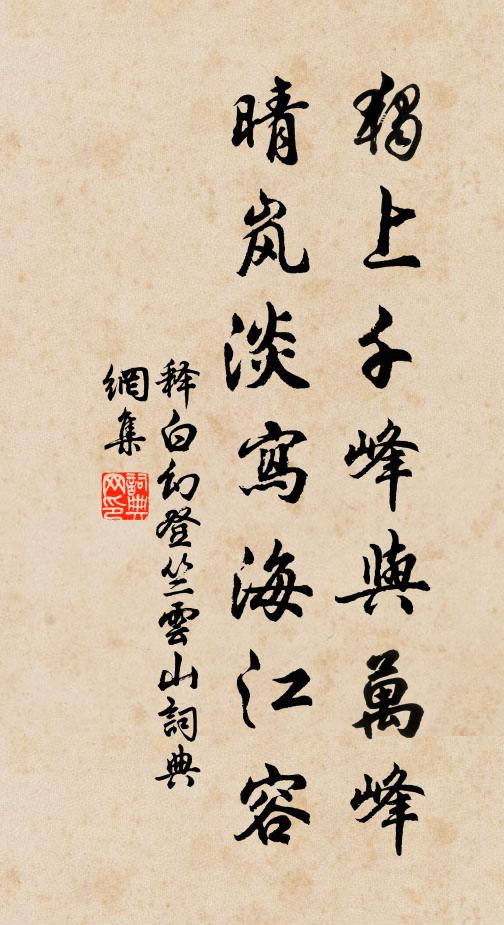 獨上千峰與萬峰
晴岚淡寫海江容
释白幻登竺雲山詞典
網集
詞典网印